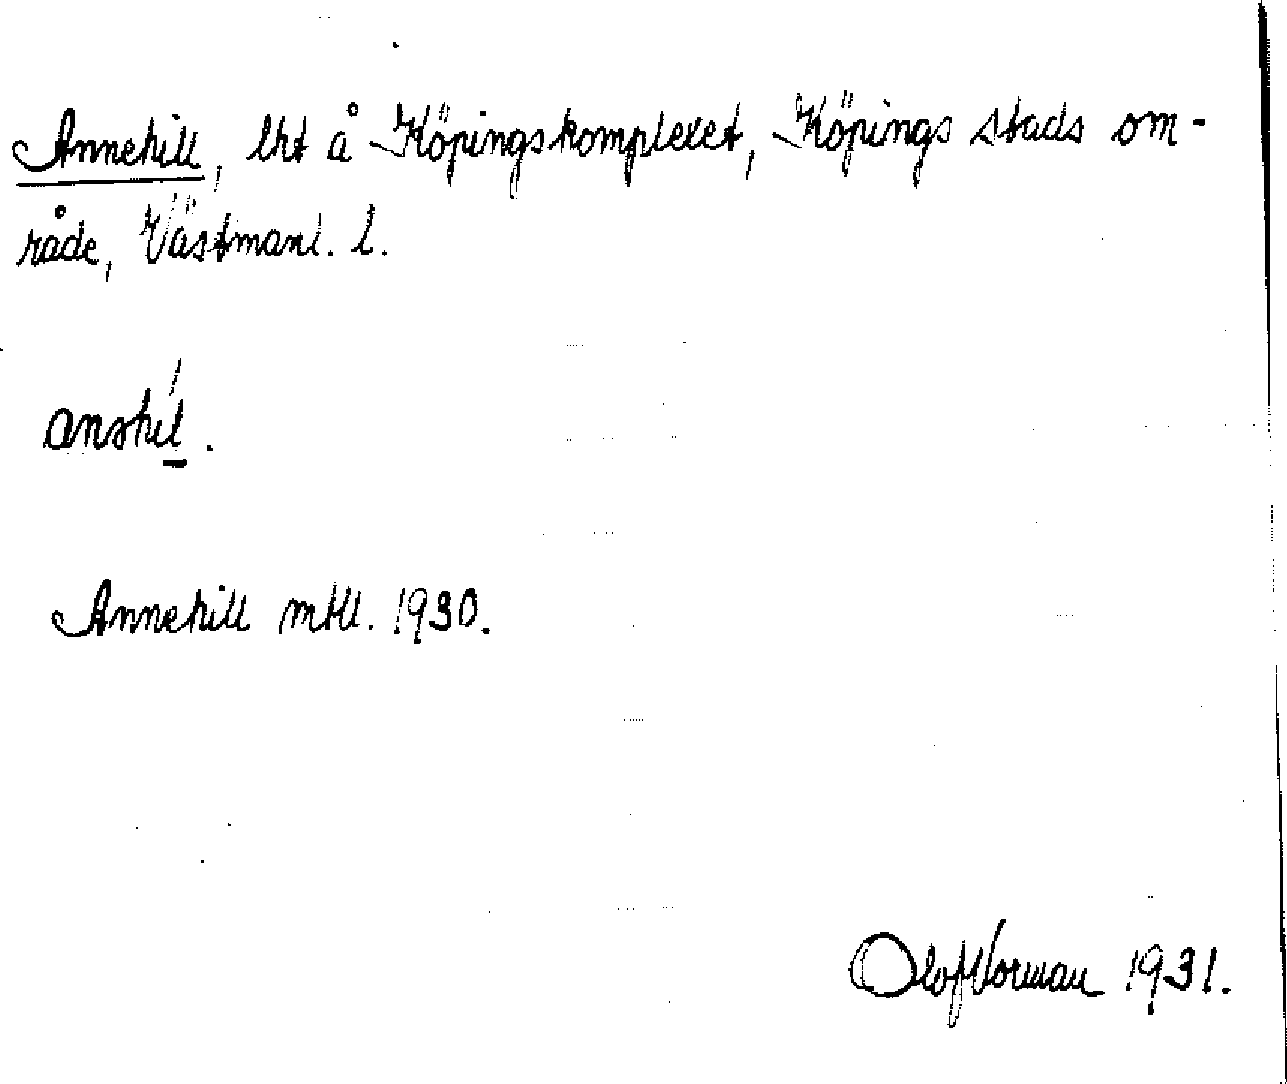 Annehill, lht å Köpingskomplexet, Köpings stads om-
råde, Västmanl. l.
Annehill mtll. 1930.
Olof Norman 1931.